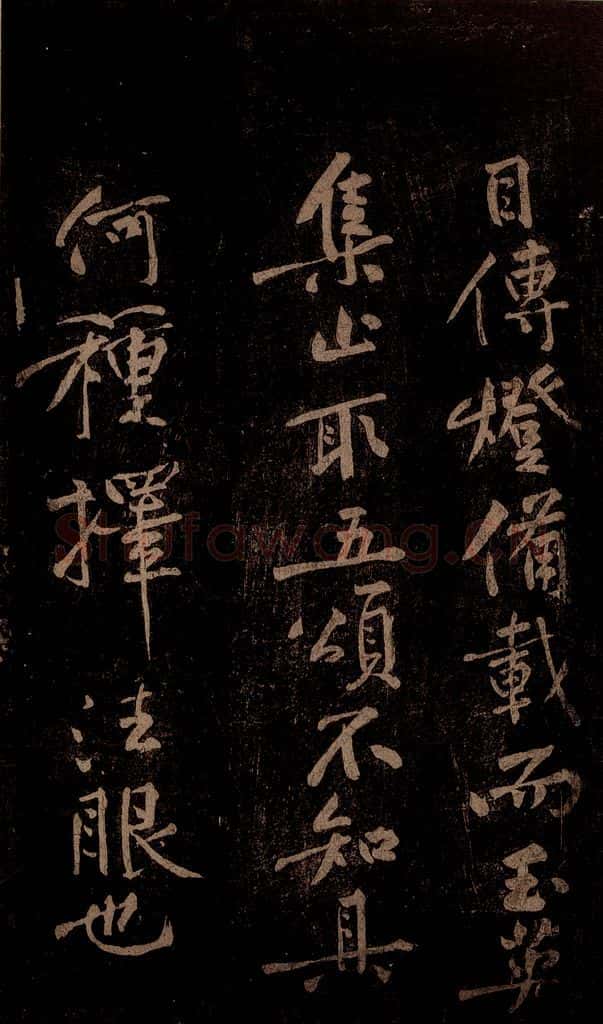 目傳燈備載而玉英
集止取五頌不知具
何種擇法眼也
Shufawang.cn